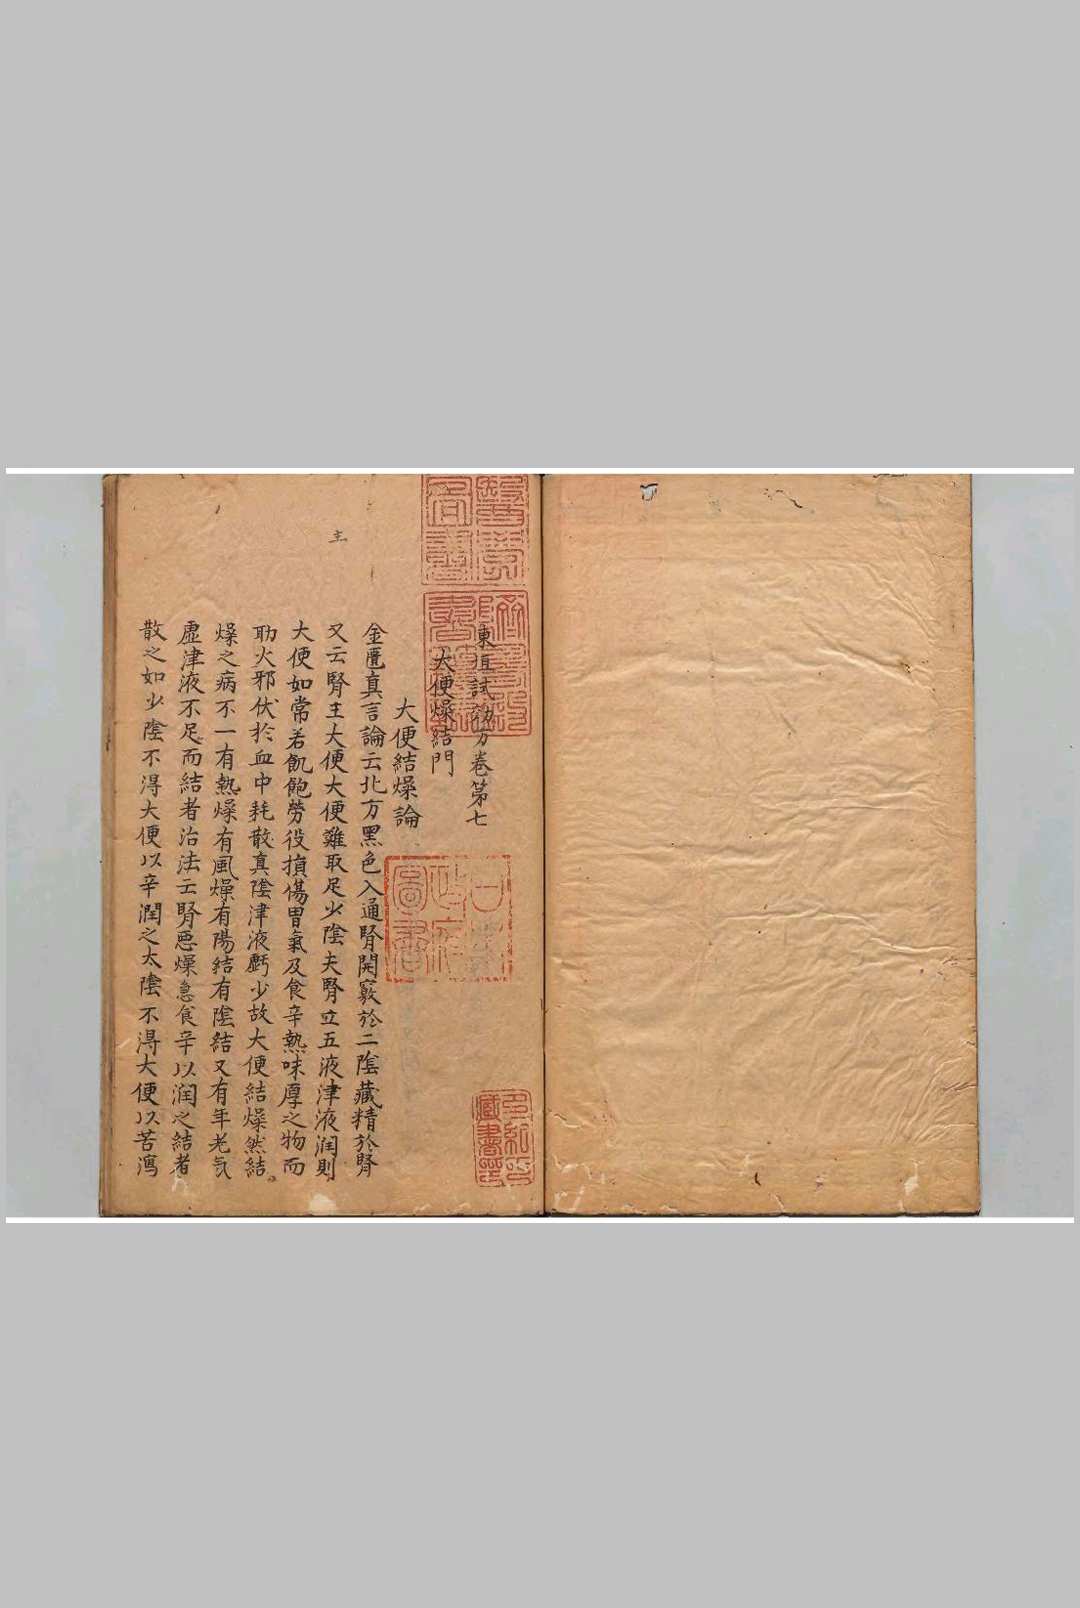 東垣試効方卷第七
大便燥結門
大便結燥論
金匱真言論云北方黑色入通腎開竅於二陰藏精於腎
又云腎主大便大便難取足少陰夫腎立五液津液潤則
大便如常若飢飽勞役損傷胃氣及食辛熱味厚之物而
助火邪伏於血中耗散真陰津液虧少故大便結燥然結
燥之病不一有熱燥有風燥有陽結有陰結又有年老氣
虛津液不足而結者治法云腎惡燥急食辛以潤之結者
散之如少陰不得大便以辛潤之太陰不得大便以苦瀉
主
圖書
藏書